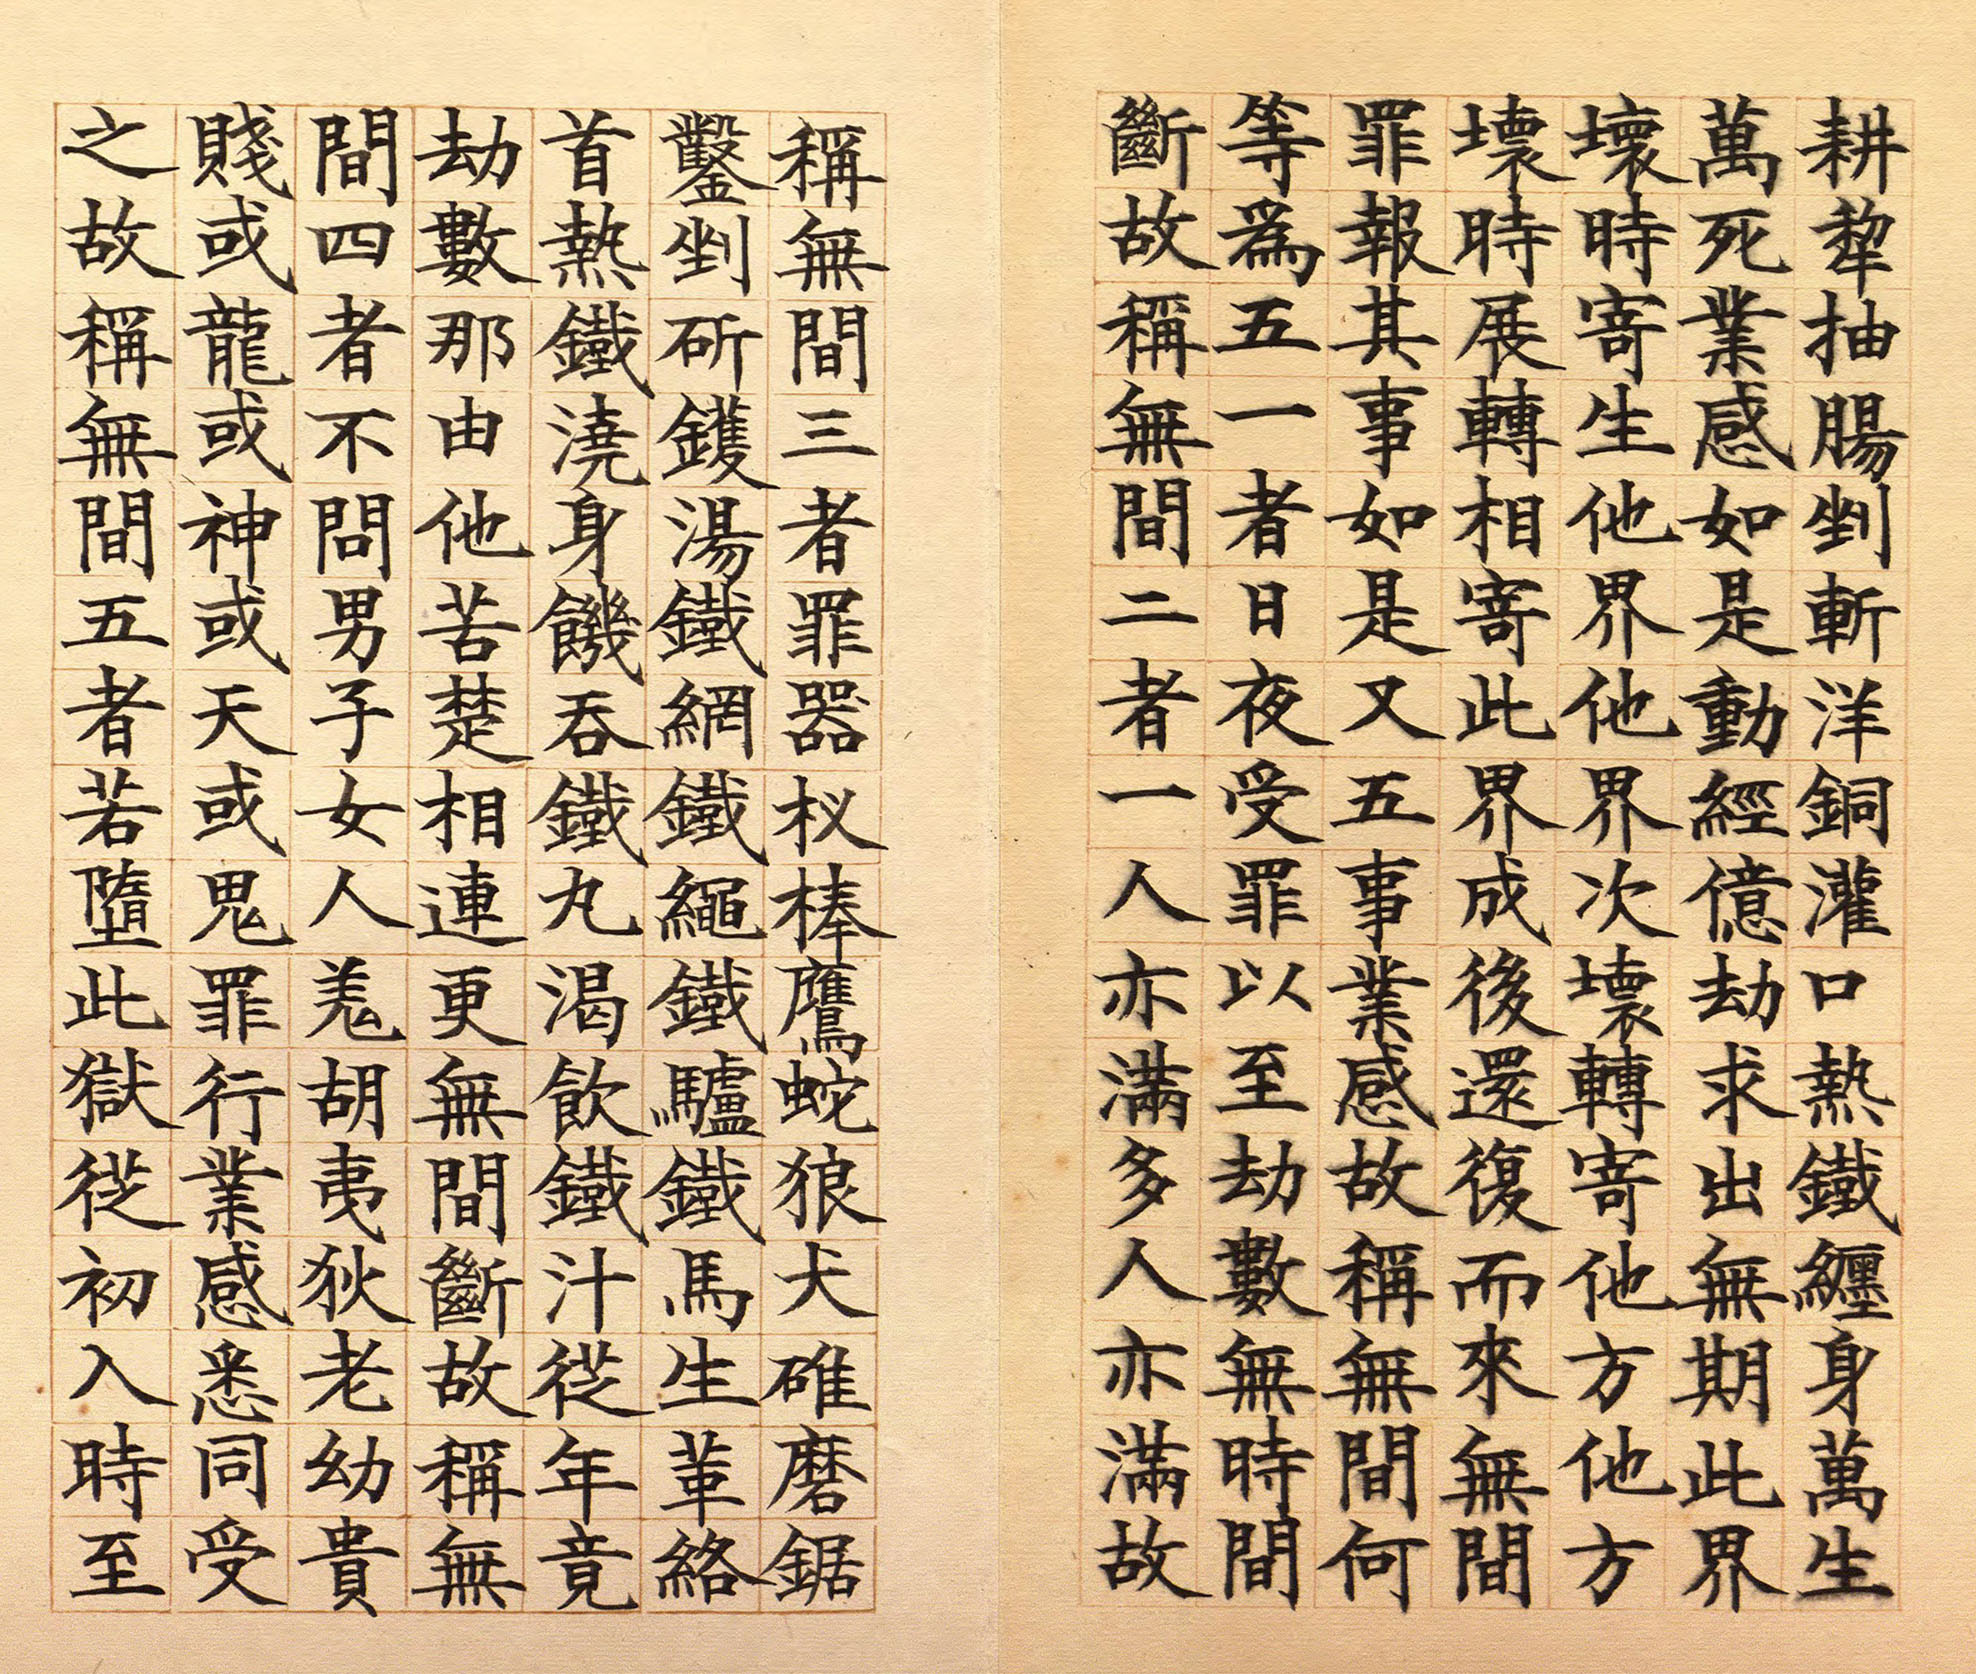 耕犂抽腸剉斬洋銅灌口熱鐵纏身萬生
萬死業感如是動經億劫求出無期此界
壞時寄生他界他界次壞轉寄他方他方
壞時展轉相寄此界成後還復而來無間
罪報其事如是又五事業感故稱無間何
等為五一者日夜受罪以至劫數無時間
斷故稱無間二者一人亦滿多人亦滿故
稱無間三者罪器杈棒鷹蛇狼犬碓磨鋸
鑿剉斫鑊湯鐵網鐵繩鐵驢鐵馬生革絡
首熱鐵澆身饑吞鐵丸渴飲鐵汁從年竟
劫數那由他苦楚相連更無間斷故稱無
間四者不問男子女人羌胡夷狄老幼貴
賤或龍或神或天或鬼罪行業感悉同受
之故稱無間五者若墮此獄從初入時至